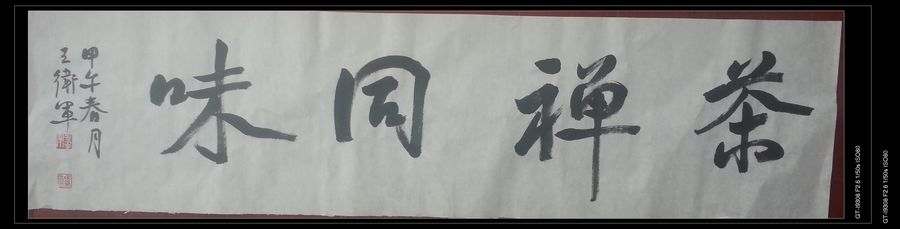 茶禅同味
甲午春月
王衛軍
GT-I9308 F2.6 1/50s ISO80
GT-I9308 F2.6 1/50s ISO80